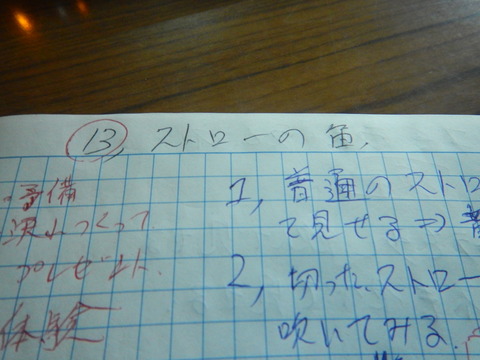 13, ストローの笛,
・予備
沢山つくって
プレゼント.
体験
1, 普通のストロ
で見せる⇒普
2, 切ったストロー
吹いてみる.